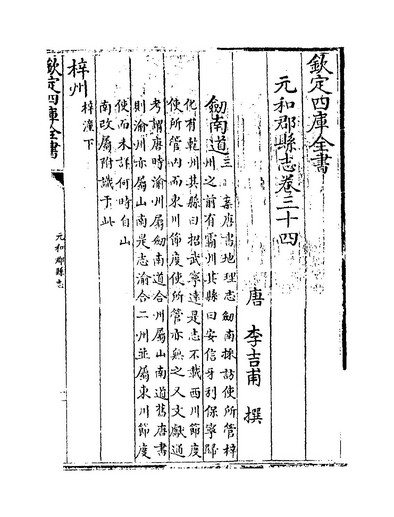 欽定四庫全書
元和郡縣志卷三十四
唐 李吉甫 撰
劒南道三
案唐書地理志劒南採訪使所管梓
州之前有霸州其縣曰安信牙利保寧歸
化有乾州其縣曰招武寧遠是志不載西川節度
使所管内而東川節度使所管亦無之又文獻通
考謂唐時渝州屬劒南道合州屬山南道舊唐書
則渝州亦屬山南是志渝合二州並屬東川節度
使而未詳何時自山
南改屬附識于此
梓州
梓潼下
欽定四庫全書
元和郡縣志